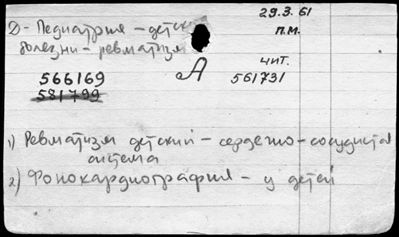 Д - Педиатрия - детск
29.3.61
болезни - ревматизм
П.М.
А
чит.
566169
561731
581799
1) Ревматизм детский - сердечно-сосудистая
система
2) Фонокардиография - у детей